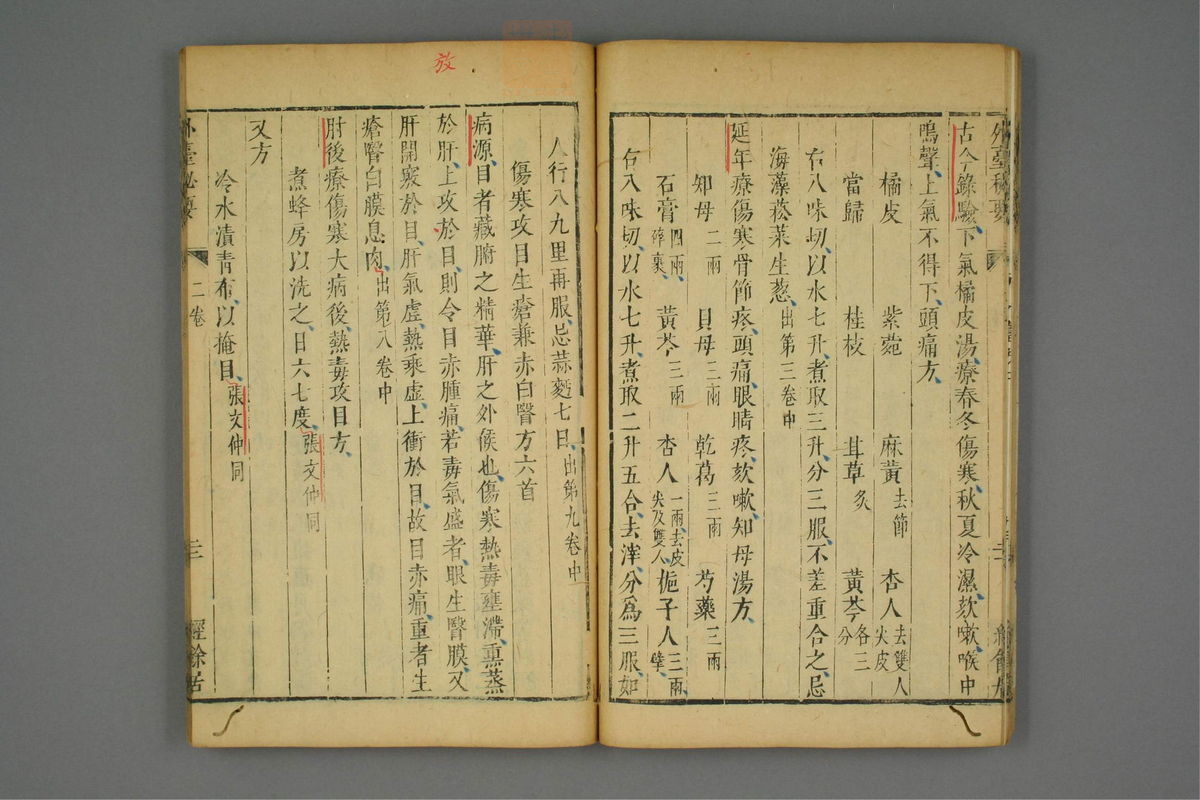 外臺秘要
古今錄驗、下氣橘皮湯、療春冬傷寒、秋夏冷濕、欬嗽、喉中
鳴聲、上氣不得下、頭痛方、
橘皮 紫菀 麻黃去節 杏人去雙人尖皮
當歸 桂枝 甘草炙 黃芩各三分
右八味切、以水七升、煮取三升、分三服、不差重合之、忌
海藻菘菜生葱、出第三卷中
延年療傷寒骨節疼、頭痛、眼睛疼、欬嗽、知母湯方、
知母二兩 貝母三兩 乾葛三兩 芍藥三兩
石膏四兩碎裹 黃芩三兩 杏人一兩、去皮尖及雙人 梔子人三兩、擘、
右八味切、以水七升、煮取二升五合、去滓、分爲三服、如
人行八九里再服、忌蒜麪七日、出第九卷中
傷寒攻目生瘡兼赤白瞖方六首
病源、目者藏腑之精華、肝之外候也、傷寒熱毒壅滯、熏蒸
於肝、上攻於目、則令目赤腫痛、若毒氣盛者、眼生瞖膜、又
肝開竅於目、肝氣虛、熱乘虛、上衝於目、故目赤痛、重者生
瘡瞖白膜息肉、出第八卷中
肘後療傷寒大病後、熱毒攻目方、
煮蜂房以洗之、日六七度、張文仲同
又方
冷水漬青布、以掩目、張文仲同
外臺秘要
二卷
三
經餘居
放